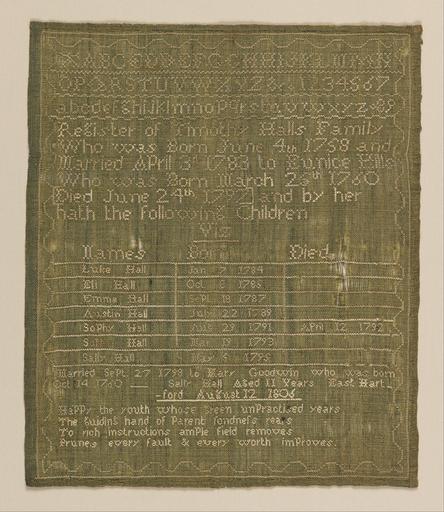 OPQRSTUVWXYZ& 11234567
abcdefghijklmnopqrstuvwxyz &
Register of Timothy Halls Family
Who was Born June 4th 1758 and
Married April 3d 1783 to Eunice Hills
Who was Born March 25th 1760
Died June 24th 1797 and by her
hath the following Children
Viz
Names Born Died
Luke Hall Jan 7 1784
Eli Hall Oct 8 1785
Emma Hall Sept 18 1787
Austin Hall July 22 1789
Sophy Hall Aug 29 1791 April 12 1792
Hall Mar 19 1793
Sally Hall May 4 1795
Married Sept 27 1798 to Mary Goodwin who was born
Oct 14 1760 Sally Hall Aged 11 Years East Hart
ford August 12 1806
Happy the youth whose green unpractised years
The guiding hand of Parent fondness rears
To rich instructions ample field removes
Prunes every fault & every worth improves.